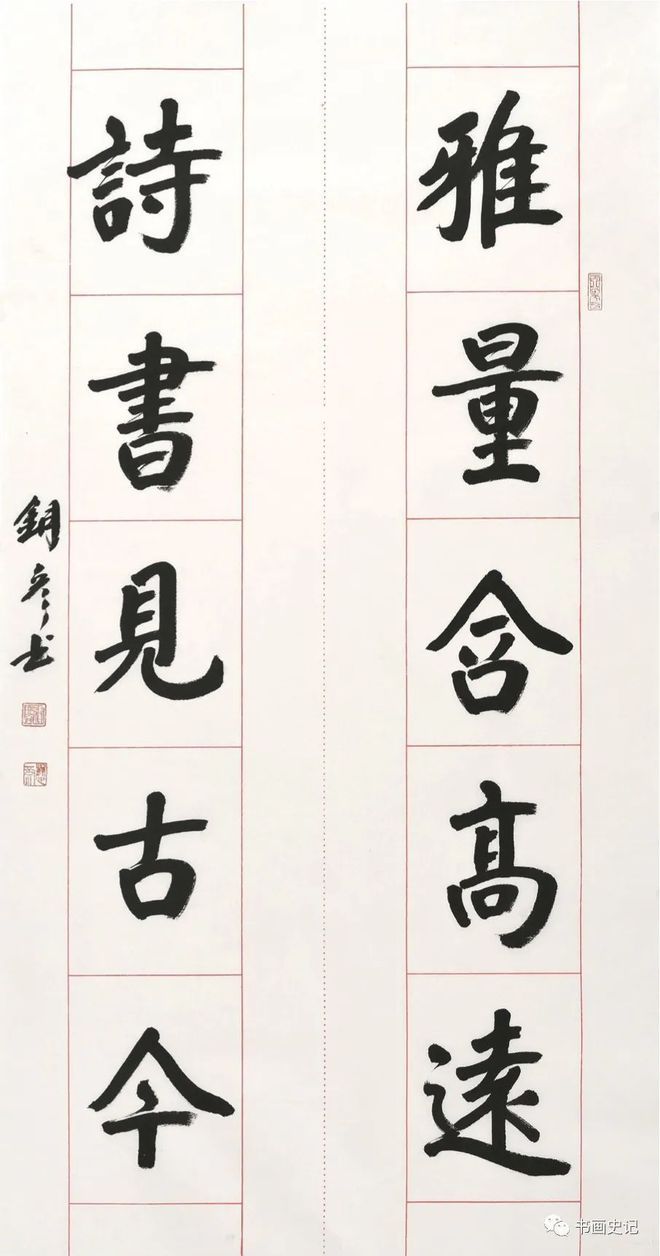 雅量含高遠
詩書見古今
鈅彦书
书画史记